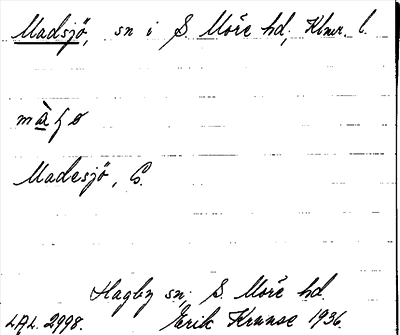 Madsjö, sn i S. Möre hd, Klmr. l.
màɧø
Madesjö, G.
Hagby sn, S. Möre hd.
LAL. 2998. Erik Kranse 1936.